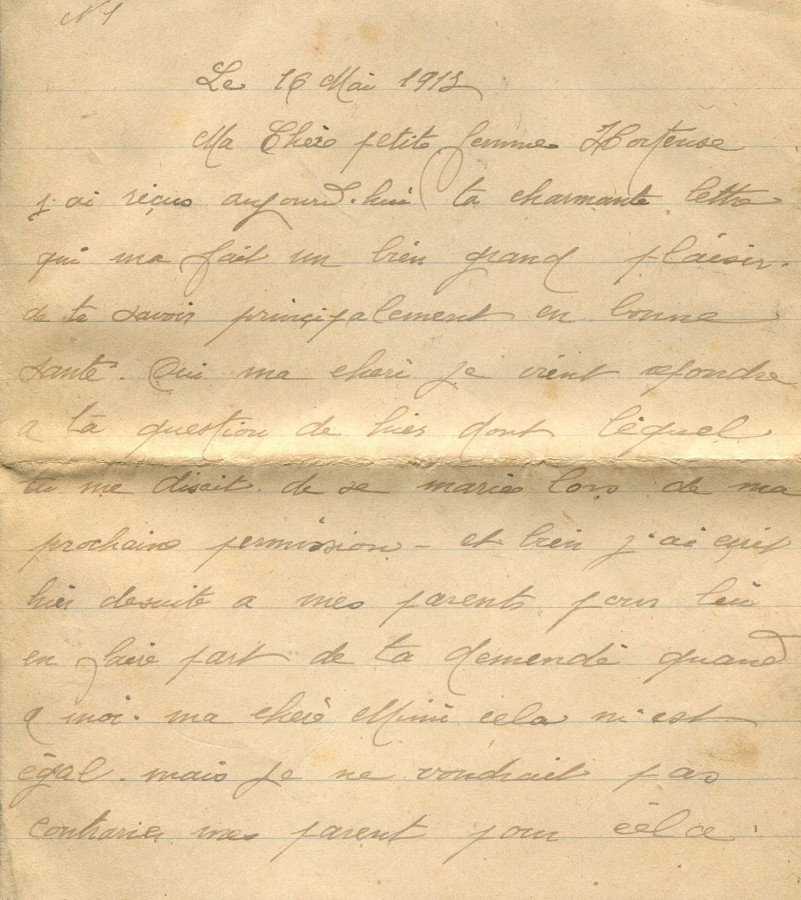 N 1
Le 16 Mai 191
Ma Chère petite femme Hortense
j'ai reçus aujourd.hui ta charmante lettre
qui ma fait un bien grand plaisir.
de te savoir principalement en bonne
santé. Oui ma cheri je vient repondre
a ta question de hier dont lequel
tu me disait de se marier lors de ma
prochaine permission - et bien j'ai ecrit
hier desuite a mes parents pour leur
en faire part de ta demende quand
a moi. ma cherè Mimi cela m'est
égal. mais je ne voudrait pas
contrarier mes parent pour cela.